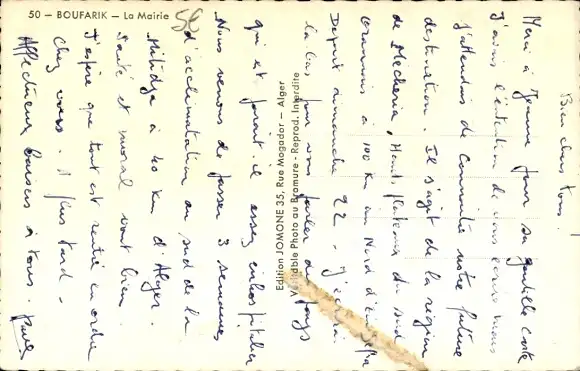 50 — BOUFARIK — La Mairie
50
Bien chers tous.
Merci à Jeanne pour sa gentille carte
J'avais l'intention de vous écrire mais
j'attendais de connaître notre future
destination. Il s'agit de la région
de Mécheria, Hauts plateaux du sud
oranais à 100 km au Nord d'
Départ dimanche 22 - J'écrirai
là bas pour vous parler du pays
qui est paraît-il assez inhospitalier
Nous venons de passer 3 semaines
d'acclimatation au sud de la
Mitidja à 40 km d'Alger.
Santé et moral vont bien.
J'espère que tout est rentré en ordre
chez vous. A plus tard -
Affectueux baisers à tous.
Edition JOMONE 35, Rue Mogador - Alger
Véritable Photo au Bromure - Reprod. Interdite